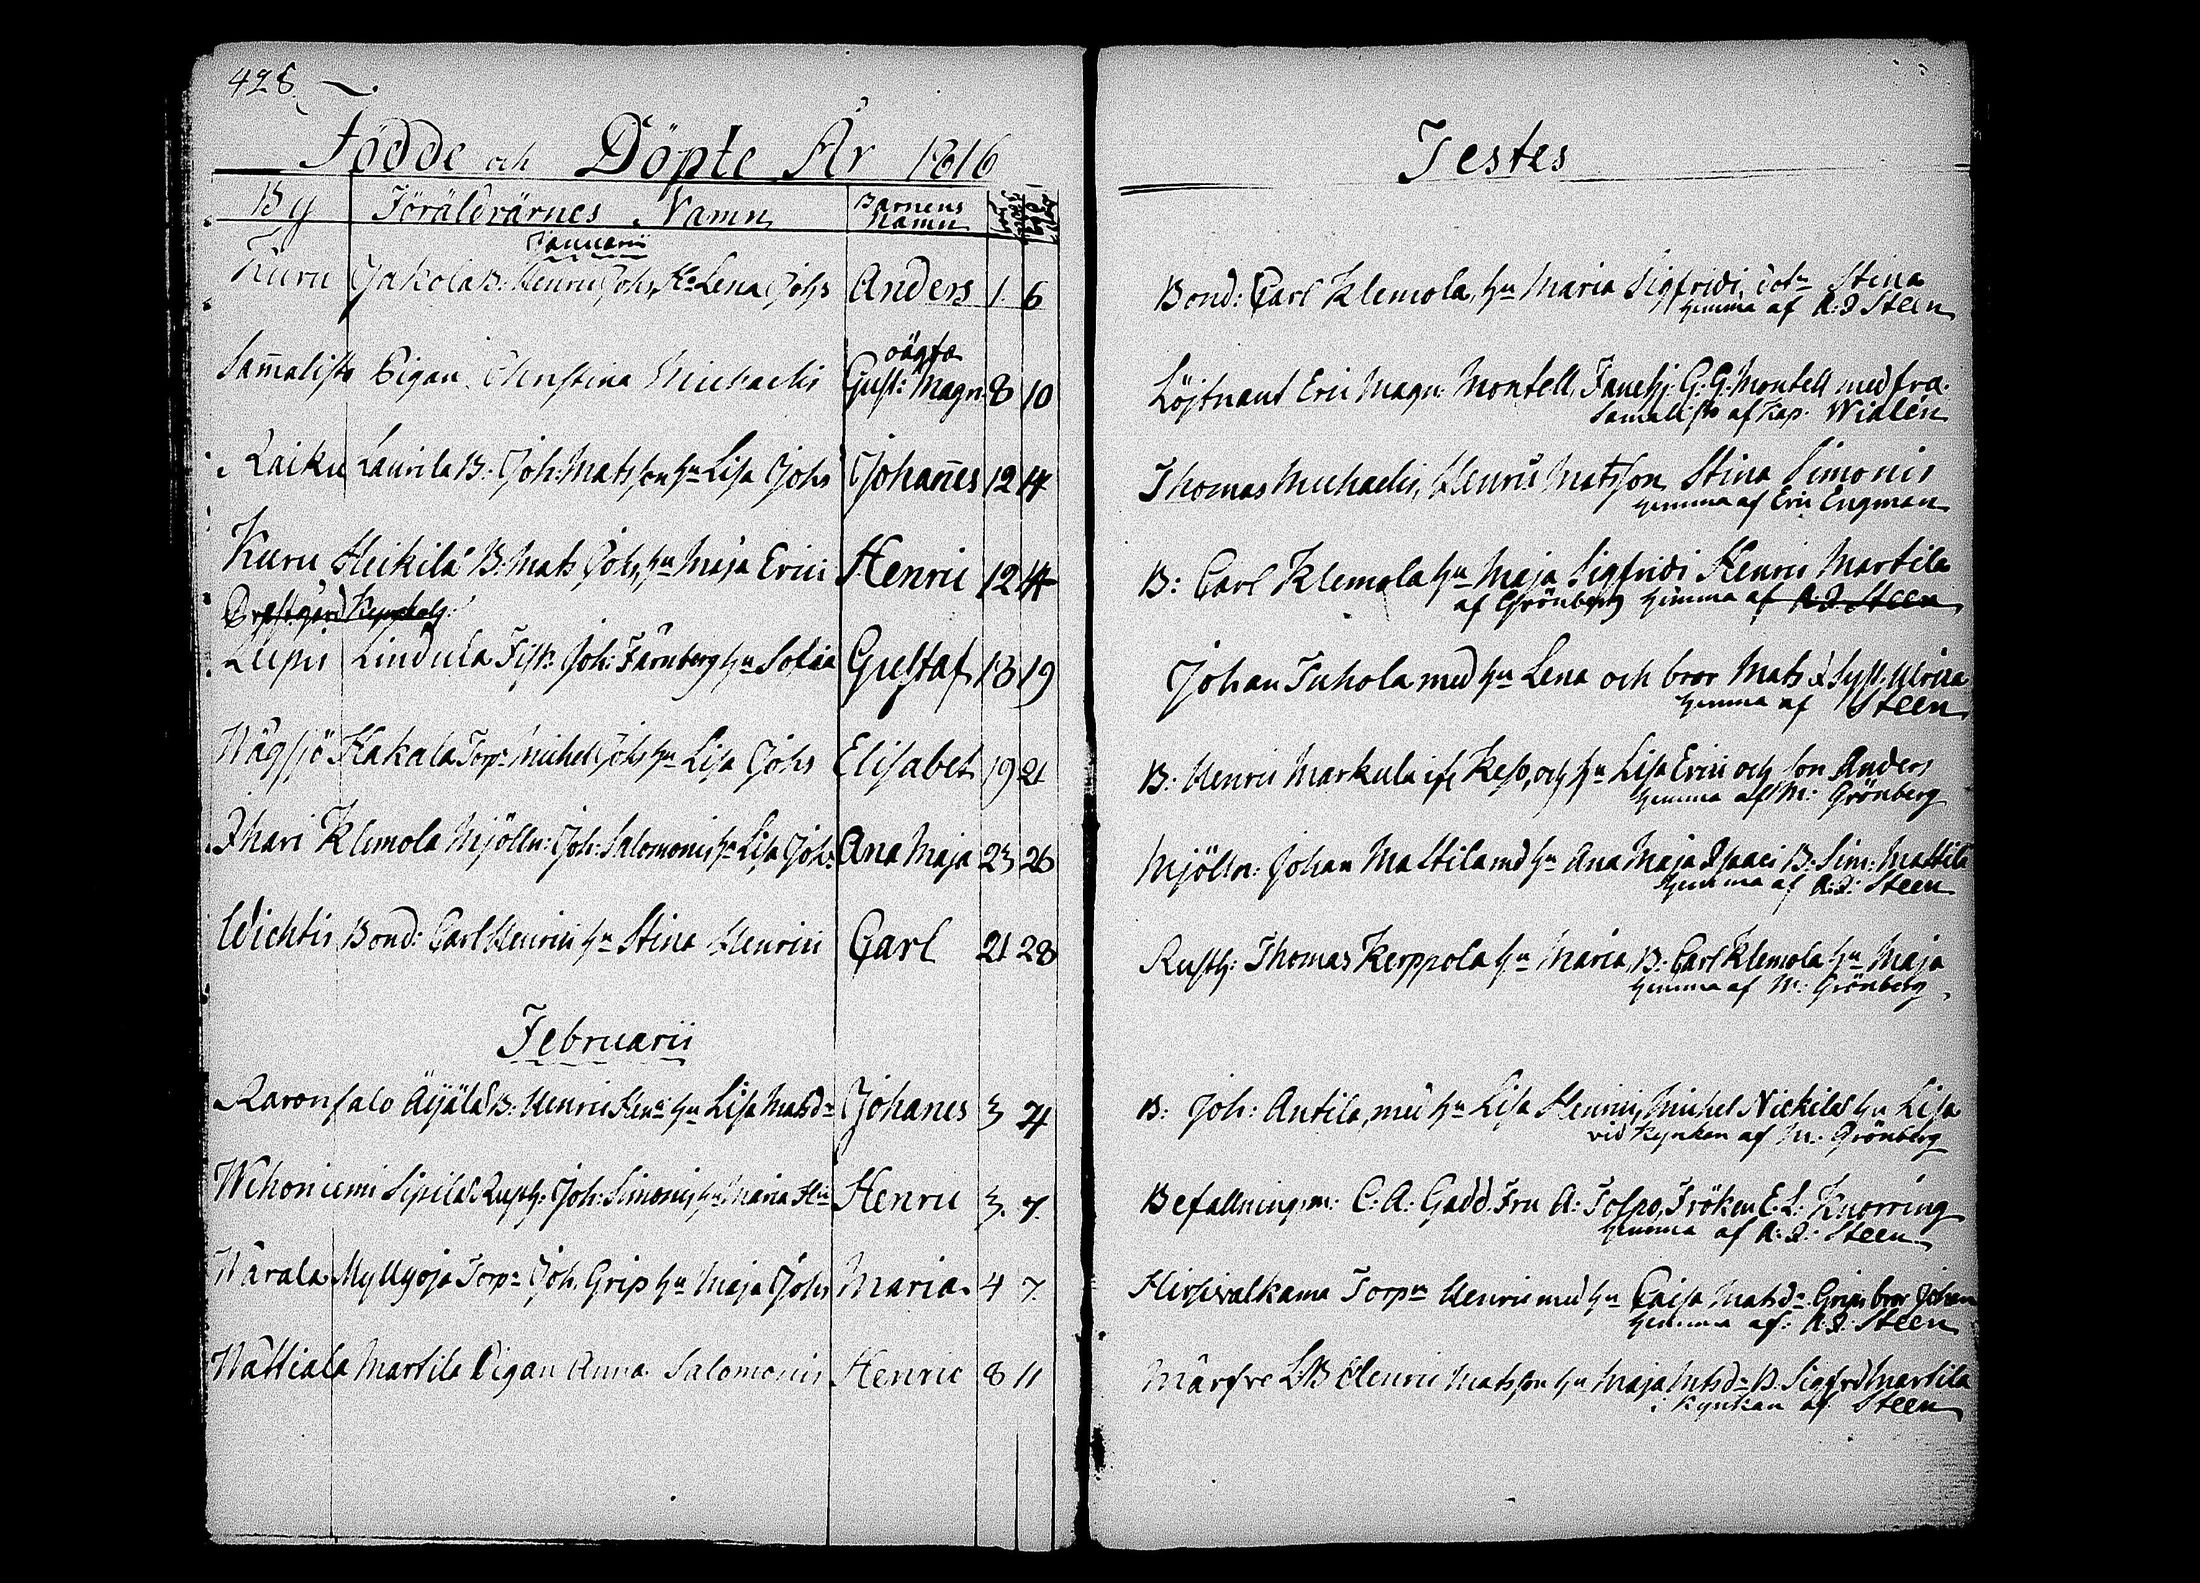 428.
Födde och Döpte År 1816
By Föräldrarnes Namn Barnens Namn
Januarii
Kuru Jakola B: Henric Joh: Ha Lena Johs Anders 1. 6
oägta
Sam̄alisto Pigan Christina Michaelis Gust: Magn: 8 10
Raiku Laurila B: Joh: Matsson hu Lisa Johs Johan̄es 12 14
Kuru Heikilä B: Mats Johs, hu Maja Erici Henric 12 14
Liipis Lindula Joh: Färnberg hu Sofia Gustaf 13 19
Wägsjö Kakala Torp: Michel Johs hu Lisa Johs Elisabet 19 21
Ihari Klemola Mjöln: Joh: Salomonis hu Lisa Joh: Ana Maja 23 26
Wichtis Bond: Carl Henrici hu Stina Henrici Carl 21 28
Februarii
Raronsalo Äijälä B: Henric hu Lisa Matsdr Johanes 3 4
Wehoniemi Sipilä Rusth: Joh: Simonis, hu Maria Henric 3. 7.
Warala Myllyoja Torp: Joh. Grip hu Maja Johs Maria. 4 7.
Wättiala Martila Pigan Anna Salomonis Henric 8 11
Testes
Bond: Carl Klemola, hu Maria Sigfridi, dotr Stina
hemma af A: I Steen
Löjtnant Eric Magn: Montell, Fanehj: G: G: Montell med fru.
Samalisto af Kap. Widlén
Thomas Michaelis, Henric Matsson Stina Simonis
hemma af Eric Engman
B: Carl Klemola hu Maja Sigfridi Henric Martila
af Grönberg hemma af A I Steen
Johan Juhola med hu Lena och bror Mats & Syst. Ulrica
hemma af Steen
B: Henric Markula och hu Lisa Erici och son Anders
hemma af M: Grönberg
Mjöln: Johan Mattila md hu Ana Maja Isaaci B: Sim: Mattila
hemma af A: I: Steen
Rusth: Thomas Kerppola hu Maria, B: Carl Klemola hu Maja
hemma af M: Grönberg
B: Joh: Antila, med hu Lisa Henrici, Michel Nickilä hu Lisa
vid Kyrkan af M: Grönberg
Befallningsm: C: A: Gadd. Fru A: Tolpo, Fröken E. L: Knorring
hemma af A: I: Steen
Hirsivalkama Torpn Henric med hu Caisa Matsdr Grips bror Johan
hemma af: A: I: Steen
Märfre Henric Matsson hu Maja Matsdr B. Sigfrd Martila
i Kyrkan af Steen